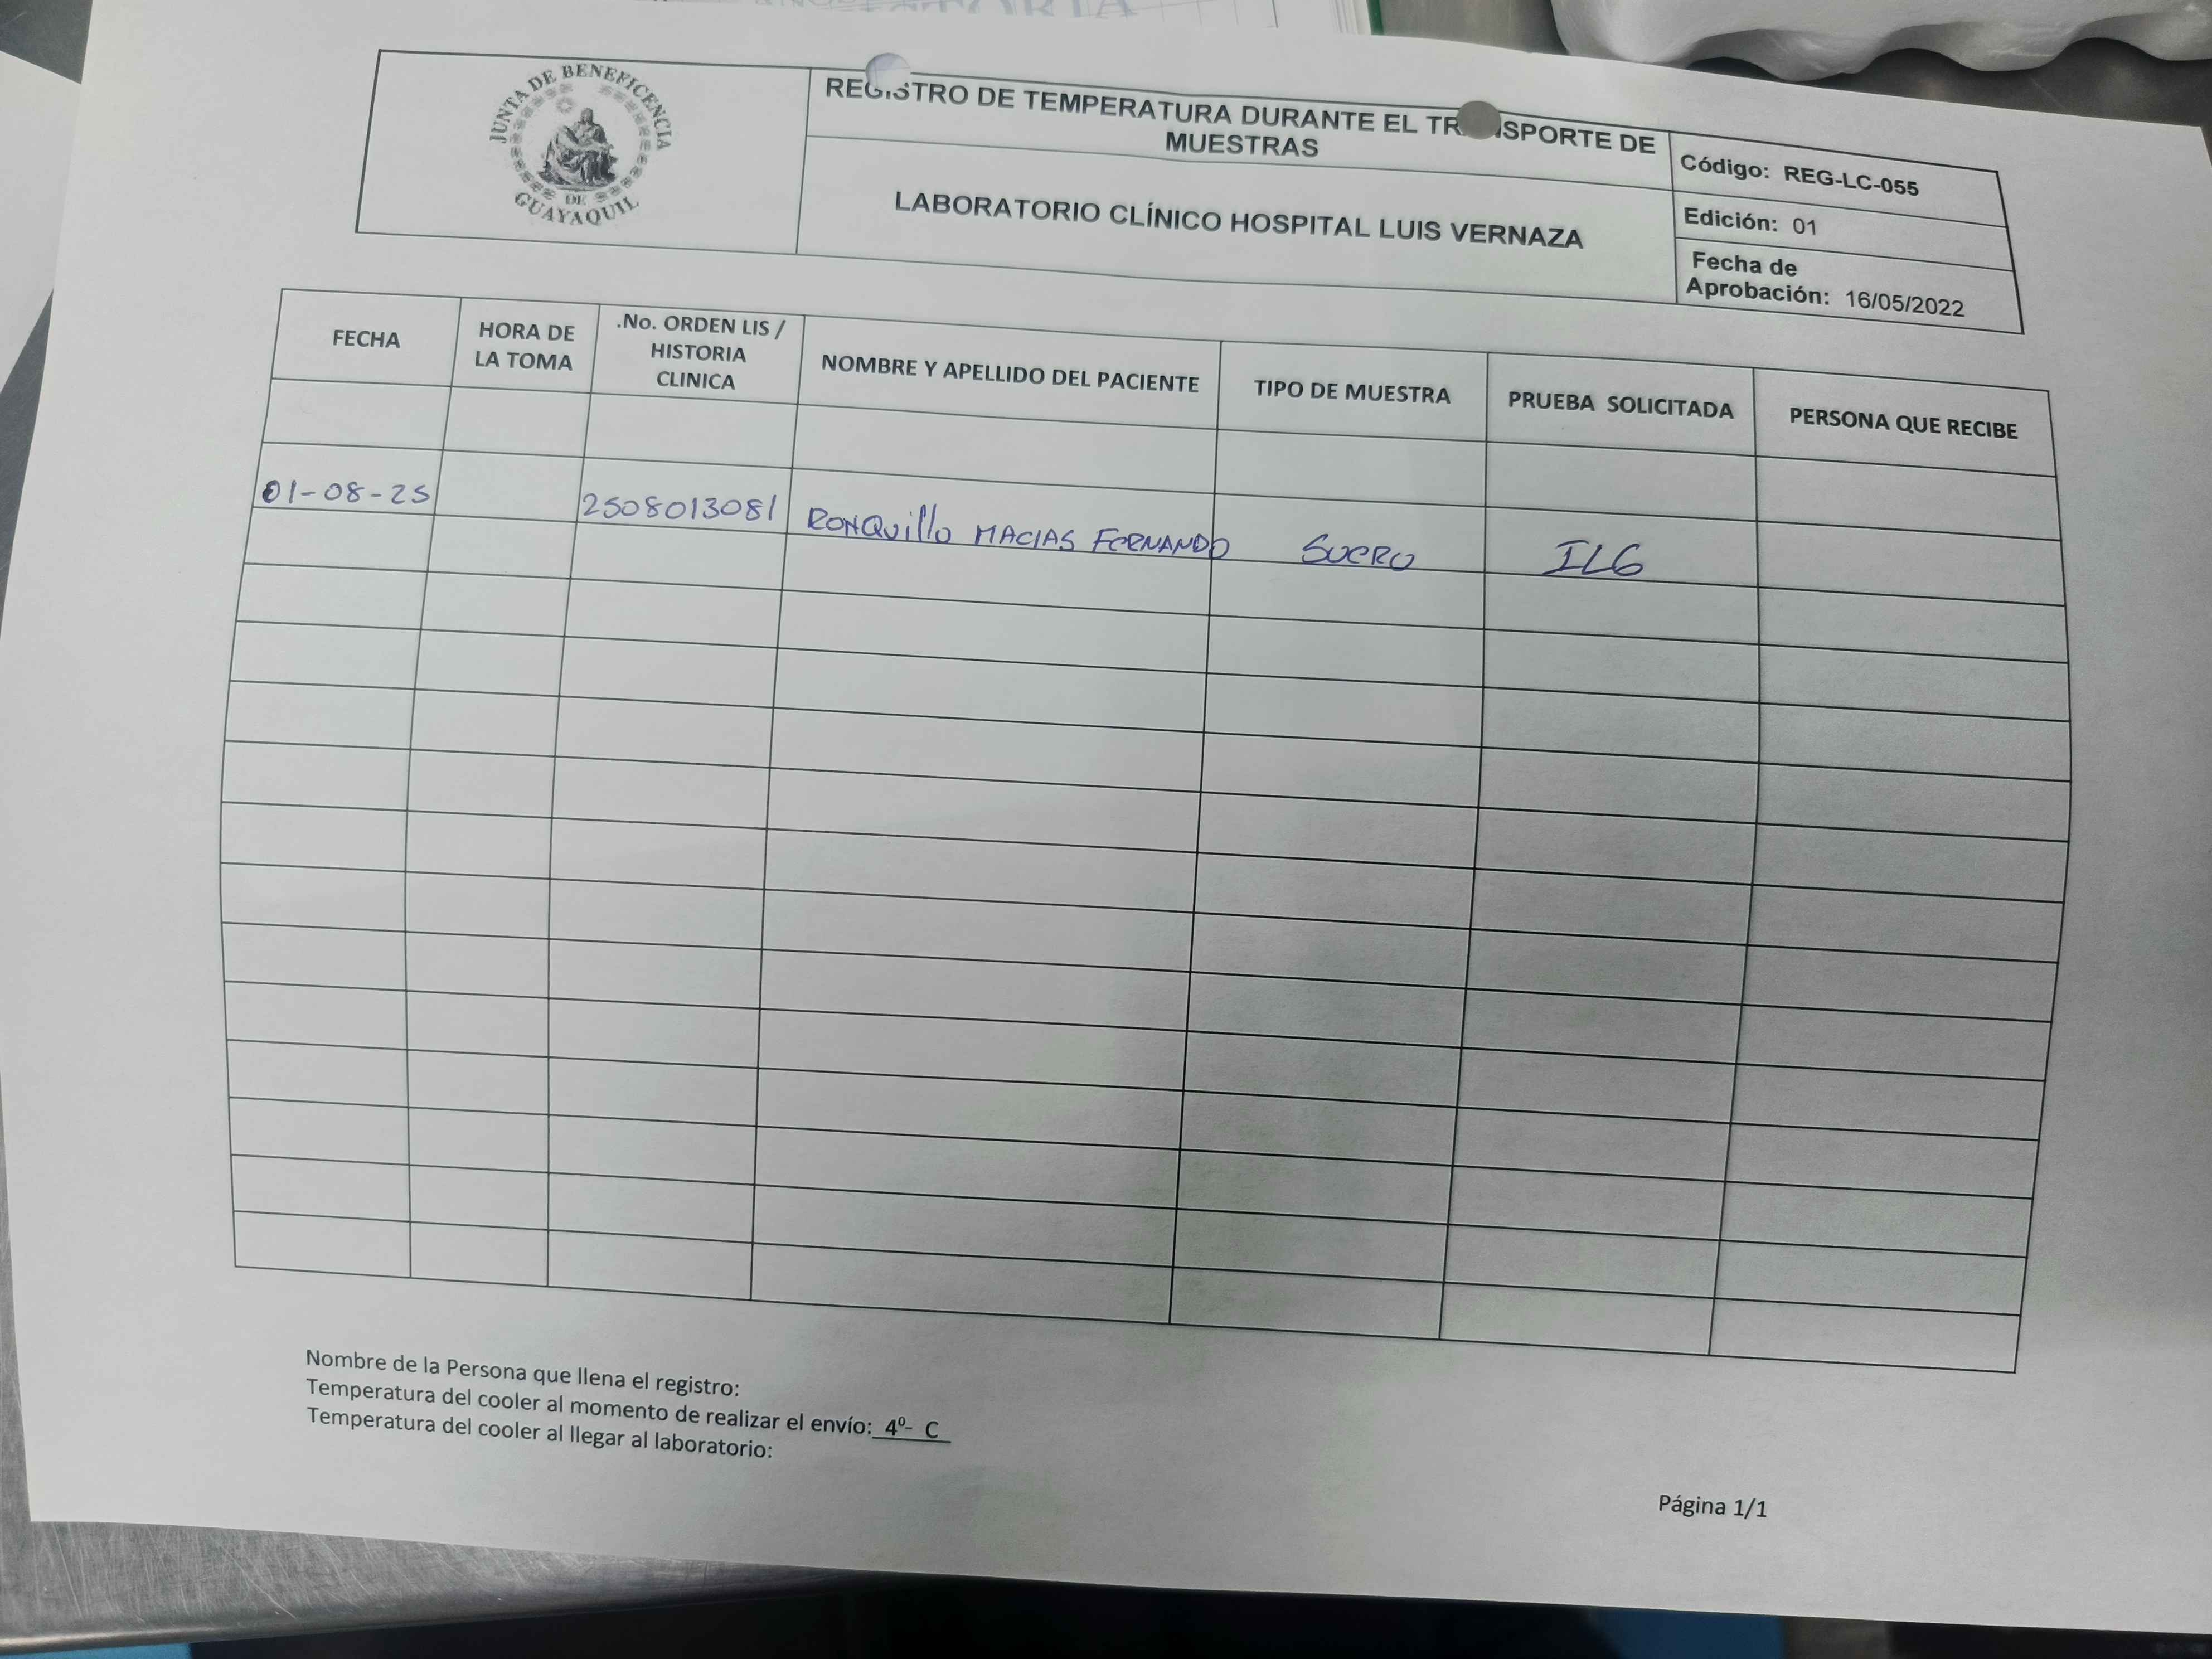 JUNTA DE BENEFICENCIA
DE
GUAYAQUIL
REGISTRO DE TEMPERATURA DURANTE EL TR SPORTE DE
MUESTRAS
LABORATORIO CLÍNICO HOSPITAL LUIS VERNAZA
Código: REG-LC-055
Edición: 01
Fecha de
Aprobación: 16/05/2022
FECHA
HORA DE
LA TOMA
.No. ORDEN LIS /
HISTORIA
CLINICA
NOMBRE Y APELLIDO DEL PACIENTE
TIPO DE MUESTRA
PRUEBA SOLICITADA
PERSONA QUE RECIBE
01-08-25 2508013081 RONQUILLO MACIAS FERNANDO SUERO IL6
Nombre de la Persona que llena el registro:
Temperatura del cooler al momento de realizar el envío: 4º- C
Temperatura del cooler al llegar al laboratorio:
Página 1/1